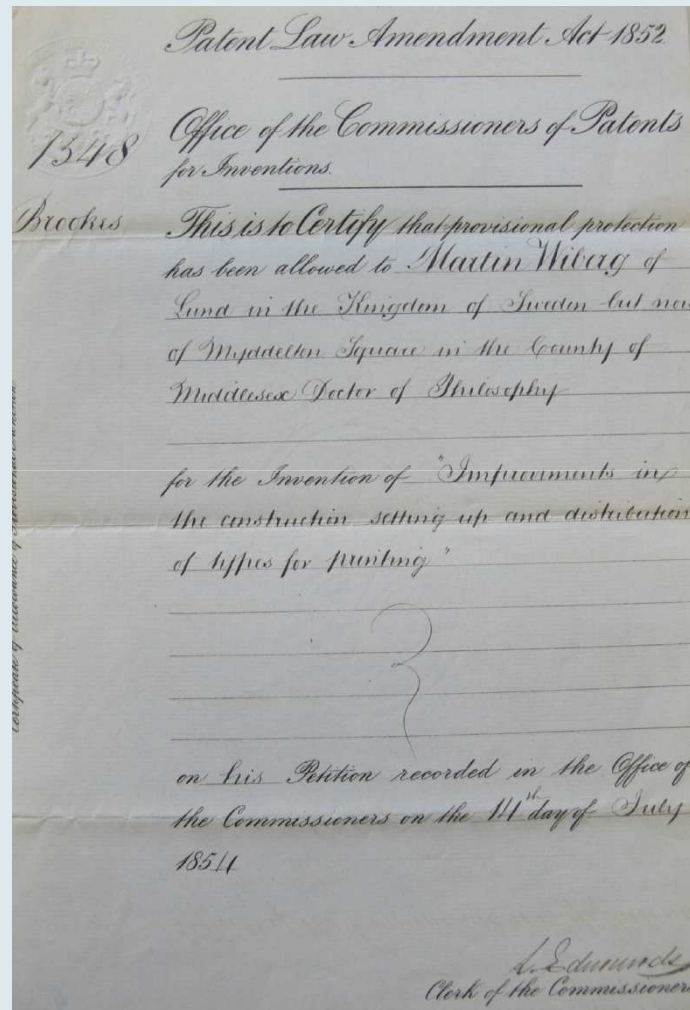 Patent Law Amendment Act 1852.
1548
Office of the Commissioners of Patents
for Inventions.
Brookes
This is to Certify that provisional protection
has been allowed to Martin Wiberg of
Lund in the Kingdom of Sweden but now
of Myddelton Square in the County of
Middlesex Doctor of Philosophy
for the Invention of "Improvements in
the construction setting up and distribution
of types for printing"
on his Petition recorded in the Office of
the Commissioners on the 14th day of July
1854
L. Edmunds
Clerk of the Commissioners
Certificate of Allowance of Provisional Protection